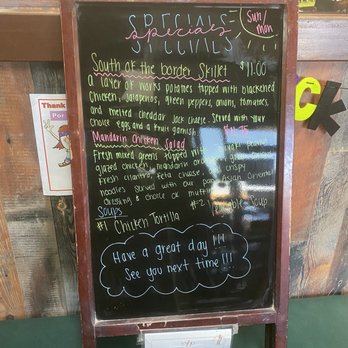 SPECIALS
specials
SPECIALS
Sun/
mon
South of the border Skillet $11.00
a layer of works potatoes topped with blackened
chicken, jalapenos, green peppers, onions, tomatoes,
and melted cheddar Jack cheese. Served with your
choice eggs and a fruit garnish
Mandarin Chicken Salad
Fresh mixed greens topped with
glazed chicken, mandarin
fresh cilantro, feta cheese, crispy
noodles served with our Asian Oriental
dressing & choice of
Soups #2 Soup
#1 Chicken Tortilla
Have a great day!!!
See you next time!!!
Thank
CK